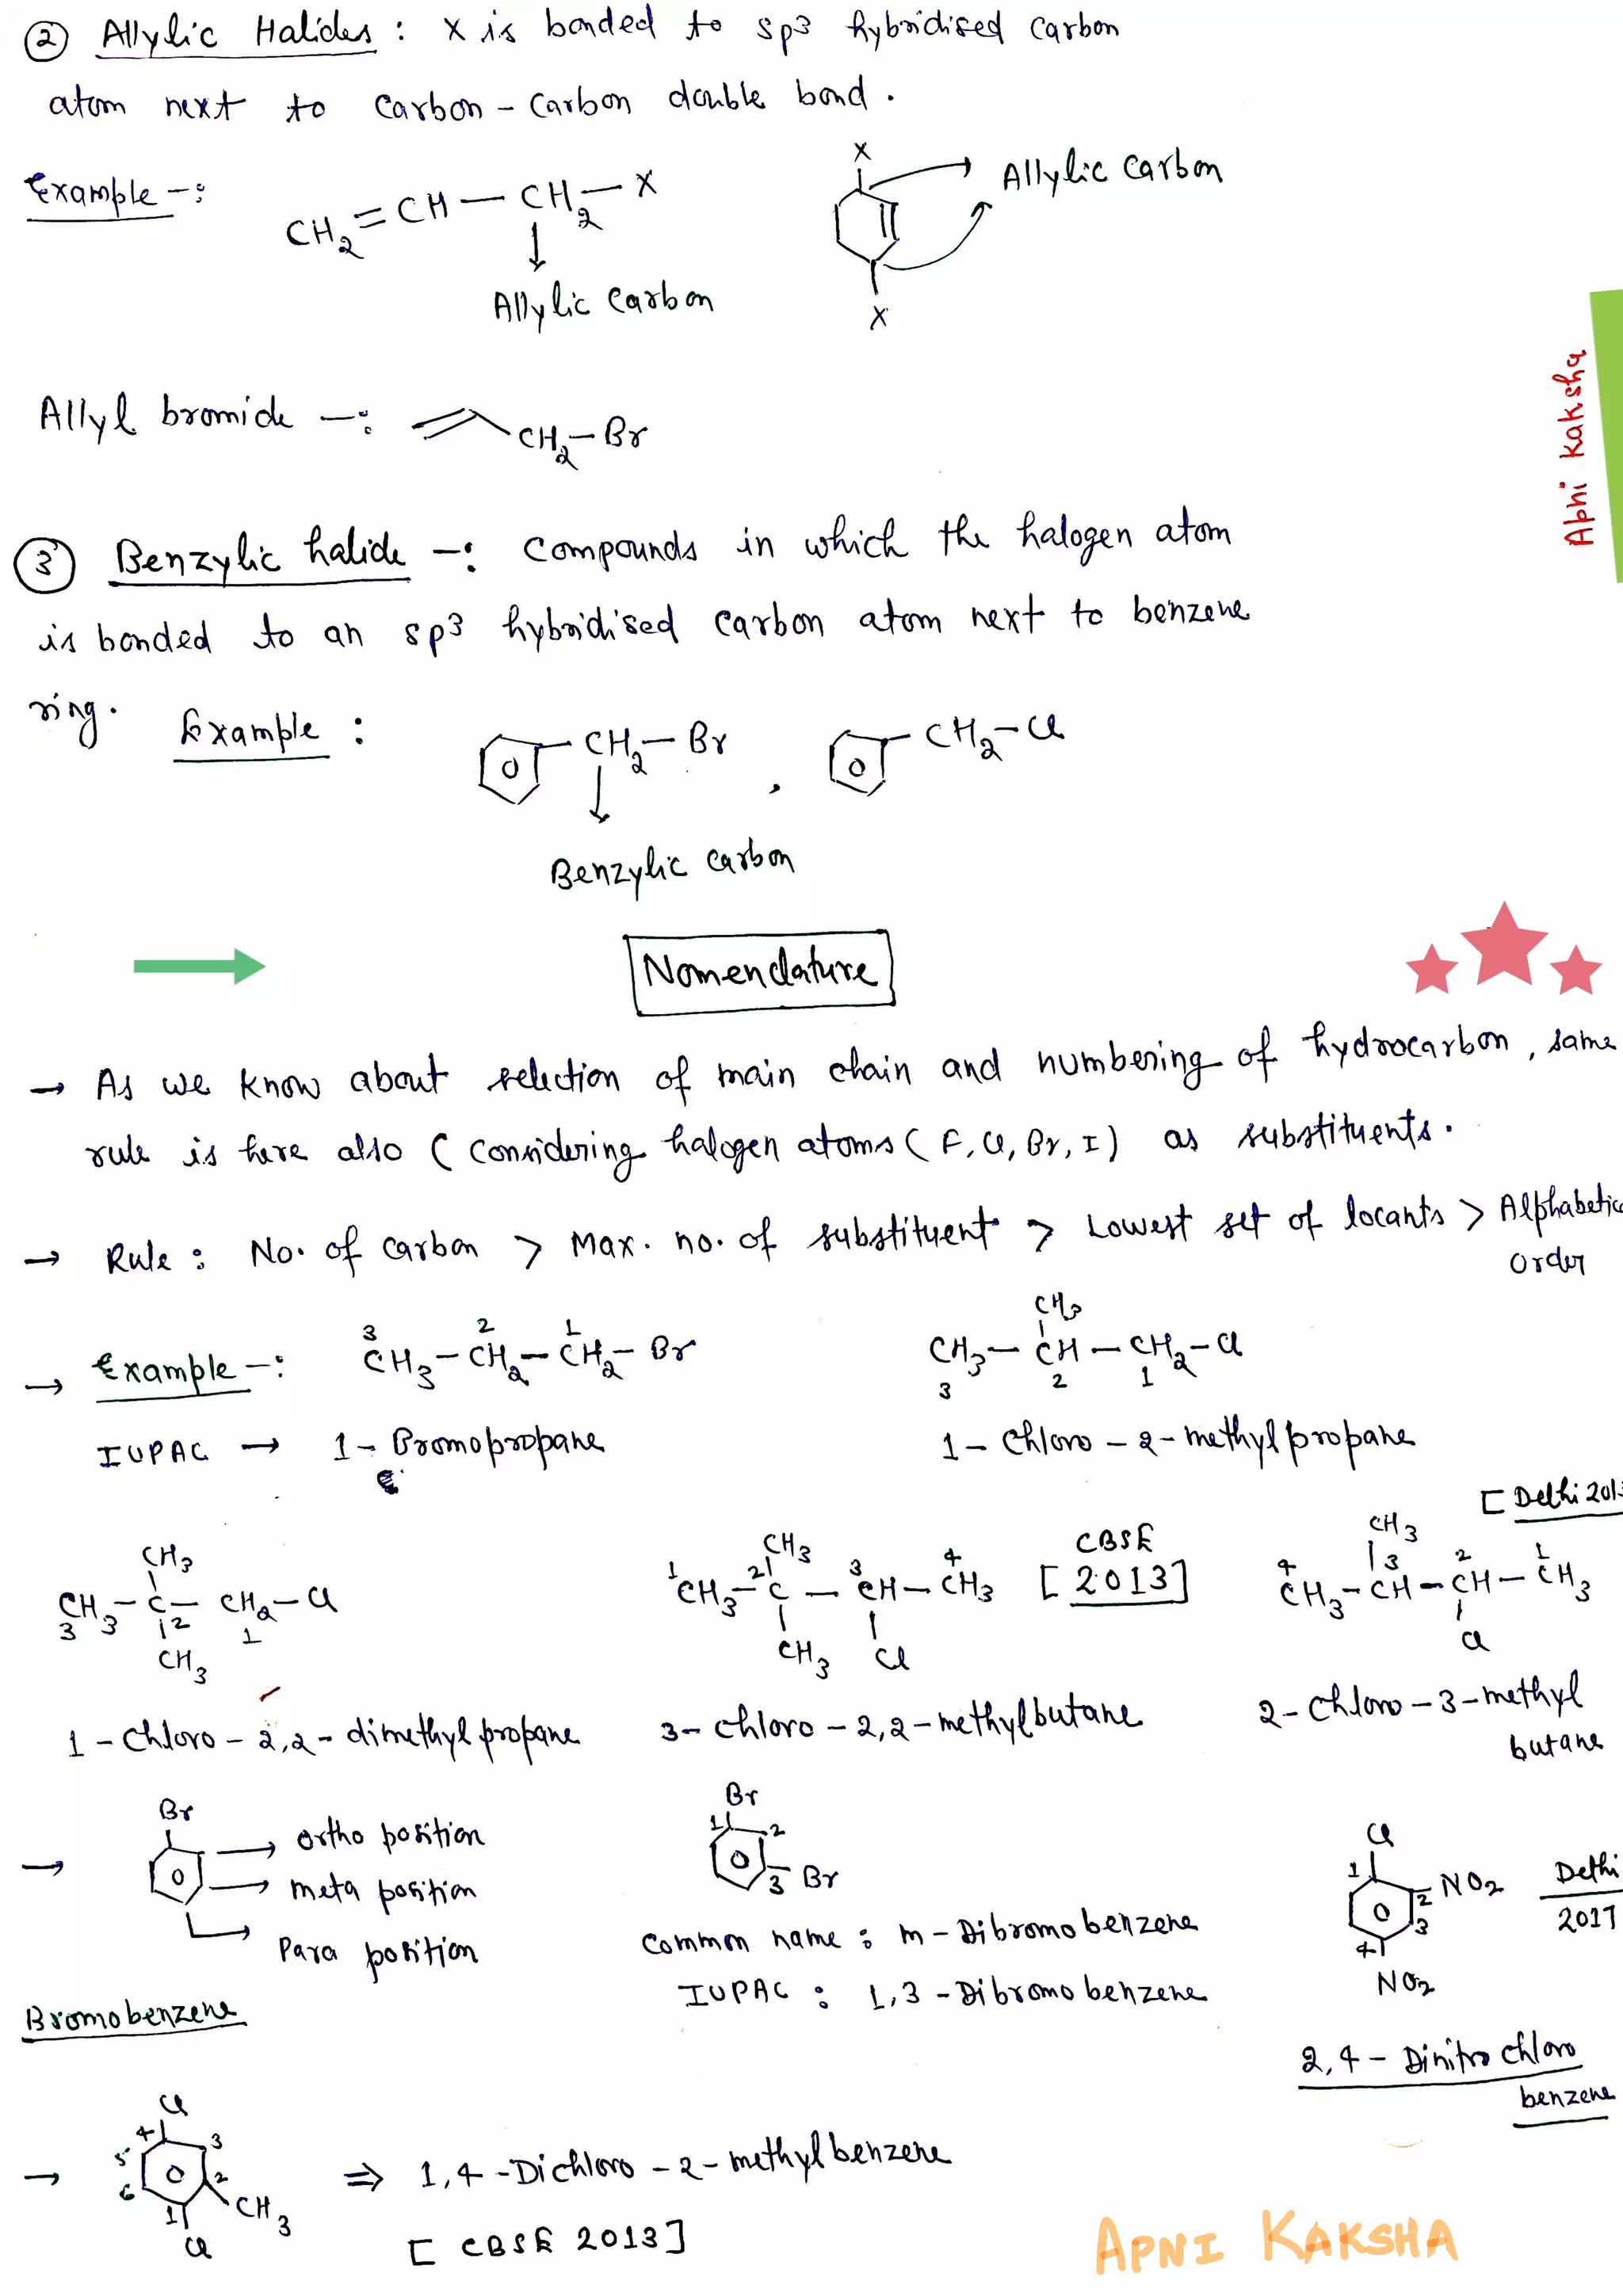 ② Allylic Halides : X is bonded to sp3 hybridised carbon
atom next to carbon - carbon double bond.
Example -:
CH2 = CH — CH2 — X
Allylic carbon
X
X
Allylic carbon
Allyl bromide -: CH2 - Br
Apni Kaksha
③ Benzylic halide -: compounds in which the halogen atom
is bonded to an sp3 hybridised carbon atom next to benzene
ring. Example : CH2 - Br , CH2 - Cl
Benzylic carbon
Nomenclature
→ As we know about selection of main chain and numbering of hydrocarbon, same
rule is here also ( considering halogen atoms ( F, Cl, Br, I ) as substituents.
→ Rule : No. of carbon > Max. no. of substituent > Lowest set of locants > Alphabetic
order
→ Example -: 3 2 1
CH3 - CH2 - CH2 - Br
CH3
CH3 - CH - CH2 - Cl
3 2 1
IUPAC → 1 - Bromopropane
1 - Chloro - 2 - methylpropane
[ Delhi 201
CH3
CH3 - C - CH2 - Cl
3 2 1
CH3
CH3
1 2 3 4
CH3 - C - CH - CH3
CH3 Cl
CBSE
[ 2013 ]
CH3
4 3 2 1
CH3 - CH - CH - CH3
Cl
1 - Chloro - 2,2 - dimethylpropane
3 - chloro - 2,2 - methylbutane
2 - Chloro - 3 - methyl
butane
→ Br
ortho position
meta position
Para position
Bromobenzene
Br
1 2 3 Br
Common name : m - Dibromobenzene
IUPAC : 1,3 - Dibromobenzene
Cl
1 2 NO2
3
4
NO2
Delhi
2017
2,4 - Dinitrochloro
benzene
→ Cl
4 3
5
6 2
1 CH3
Cl
⇒ 1,4 - Dichloro - 2 - methylbenzene
[ CBSE 2013 ]
APNI KAKSHA